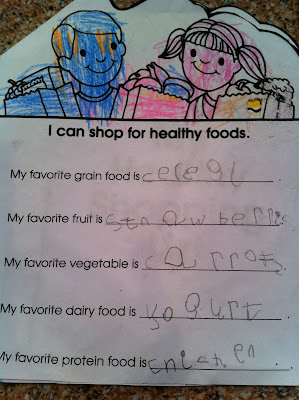 I can shop for healthy foods.
My favorite grain food is cereal.
My favorite fruit is strawberries.
My favorite vegetable is carrots.
My favorite dairy food is yogurt.
My favorite protein food is chicken.